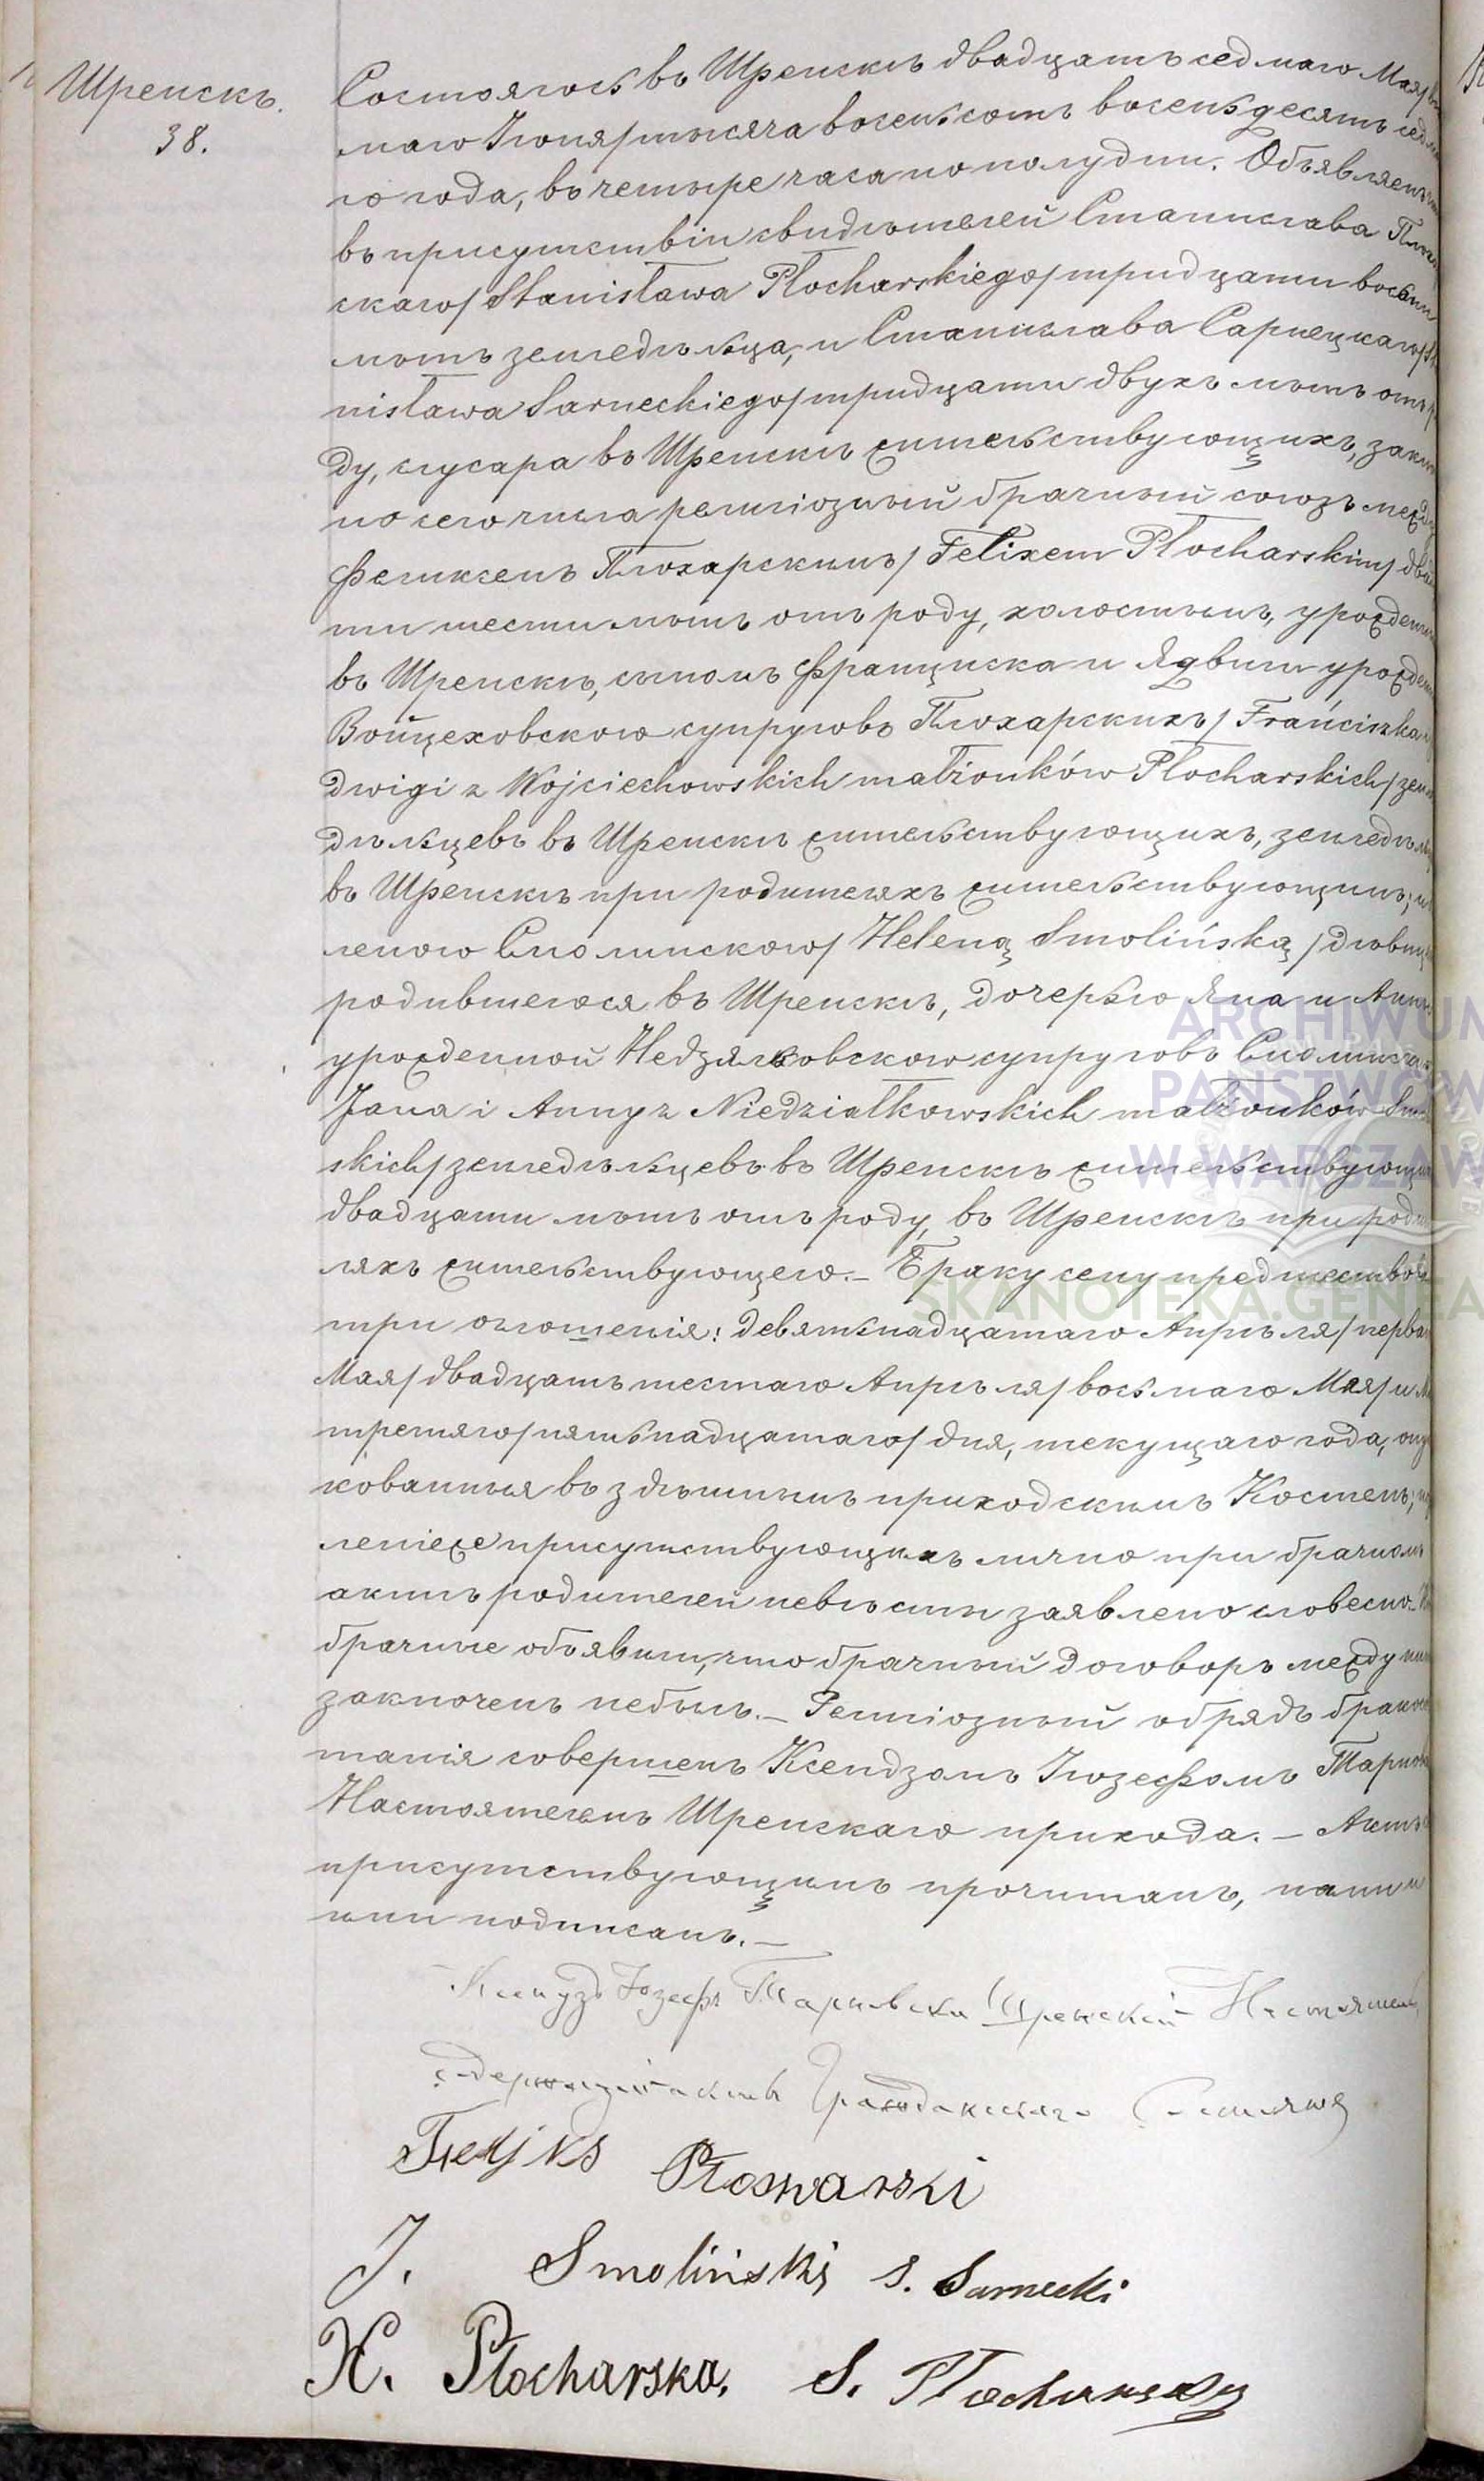 Шренскъ.
38.
Состоялось въ Шренскѣ двадцать седьмаго Мая/
маго Іюня/тысяча восемьсотъ восемьдесятъ
го года, въ четыре часа по полудни. Объявляемъ
въ присутствіи свидѣтелей Станислава
скаго/Stanisława Płocharskiego/тридцати восьми
лѣтъ земледѣльца, и Станислава Сарнецкаго/
nisława Sarneckiego/тридцати двухъ лѣтъ отъ
ду, слусара въ Шренскѣ жительствующихъ,
но сего числа религіозный брачный союзъ между
Феликсемъ Плохарскимъ/Felixem Płocharskim/
ти шести лѣтъ отъ роду, холостымъ,
въ Шренскѣ, сыномъ Франциска и Ядвиги
Войцеховскою супруговъ Плохарскихъ/Franciszka
dwigi z Wojciechowskich małżonków Płocharskich/
дѣльцевъ въ Шренскѣ жительствующихъ,
въ Шренскѣ при родителяхъ жительствующимъ;
леною Смолинскою/Heleną Smolińską/дѣвицею
родившеюся въ Шренскѣ, дочерью Яна и Анны
урожденной Недзялковскою супруговъ
Jana i Anny z Niedziałkowskich małżonków
skich/земледѣльцевъ въ Шренскѣ
двадцати лѣтъ отъ роду, въ Шренскѣ при
ляхъ жительствующею. — Браку сему
три оглошенія: девятьнадцатаго Апрѣля/
Мая/двадцать шестаго Апрѣля/восьмаго Мая/и
третяго/пятьнадцатаго/дня, текущаго года,
кованныя въ здѣшнимъ приходскимъ Костелѣ;
леніеже присутствующихъ лично при брачномъ
актѣ родителей невѣсты заявлено словесно. —
брачные объявили, что брачный договоръ между ними
заключенъ небылъ. — Религіозный обрядъ
танія совершенъ Ксендзомъ Іюзефомъ
Настоятелемъ Шренскаго прихода. — Актъ
присутствующимъ прочитанъ, нами и
ими подписанъ. —
Ксендзъ Юзефъ Тарновски Шренскій Настоятель
содержащій актъ Гражданскаго Состоянія
Feliks Płocharski
J. Smolinski S. Sarnecki
H. Płocharska. S. Płocharski
ARCHIWUM
PAŃSTWOW
W WARSZAW
SKANOTEKA.GENEA